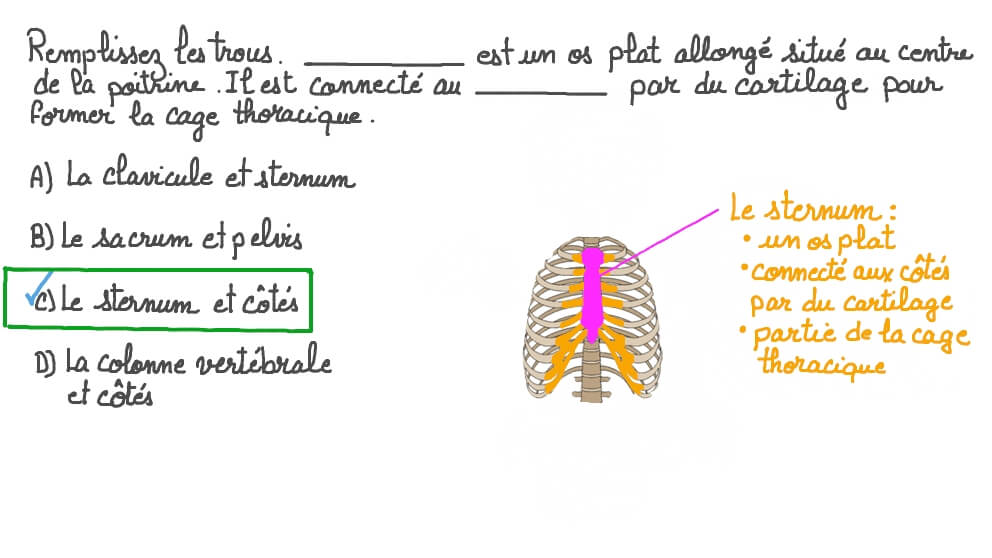 Remplissez les trous. __________ est un os plat allongé situé au centre
de la poitrine. Il est connecté au __________ par du cartilage pour
former la cage thoracique.
A) La clavicule et sternum
B) Le sacrum et pelvis
C) Le sternum et côtés
D) La colonne vertébrale
et côtés
Le sternum :
• un os plat
• connecté aux côtés
par du cartilage
• partie de la cage
thoracique